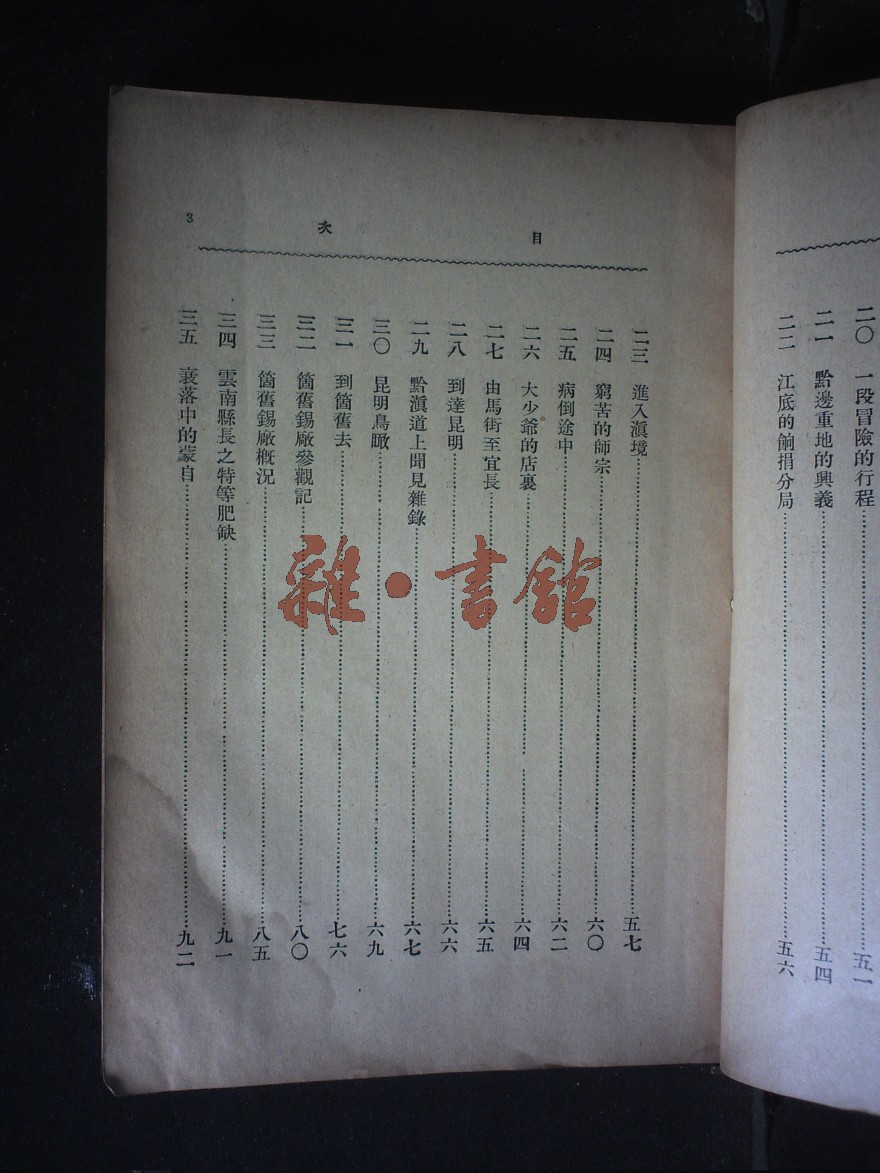 二〇 一段冒險的行程……五一
二一 黔邊重地的興義……五四
二二 江底的餉捐分局……五六
目次
3
二三 進入滇境……五七
二四 窮苦的師宗……六〇
二五 病倒途中……六二
二六 大少爺的店裏……六四
二七 由馬街至宜良……六五
二八 到達昆明……六六
二九 黔滇道上聞見雜錄……六七
三〇 昆明鳥瞰……六九
三一 到箇舊去……七六
三二 箇舊錫廠參觀記……八〇
三三 箇舊錫廠概況……八五
三四 雲南縣長之特等肥缺……九一
三五 衰落中的蒙自……九二
雜·書館